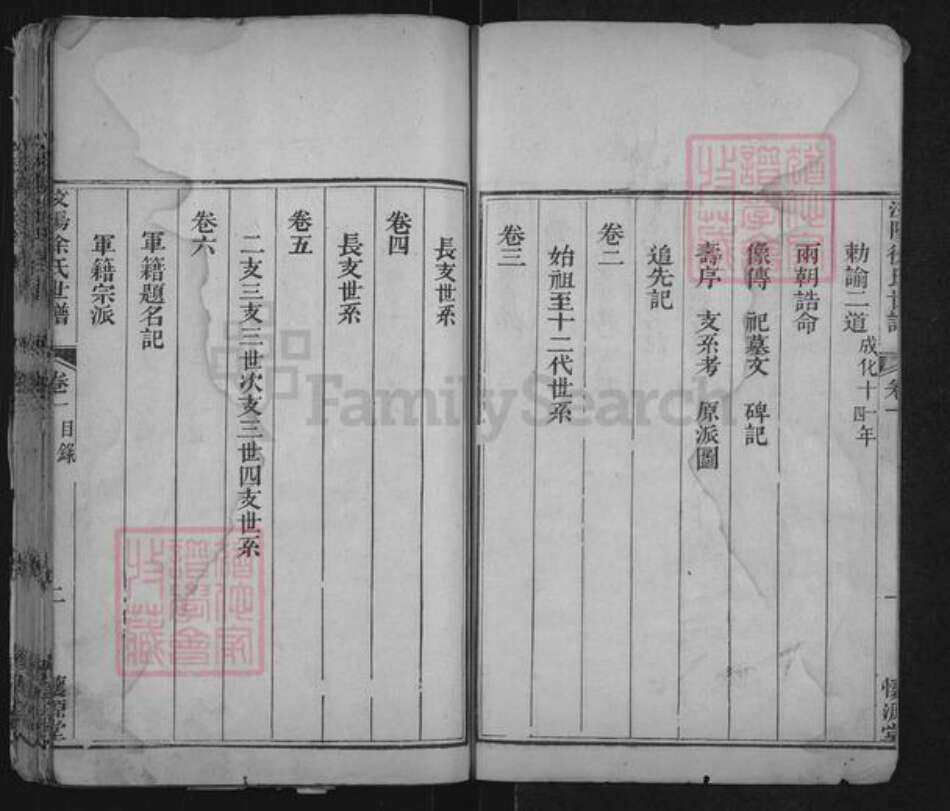 勅諭二道 成化十一年 四
兩朝誥命
像傳 祀墓文 碑記
壽序 支系考 原派圖
追先記
卷二
始祖至十二代世系
卷三
長支世系
卷四
長支世系
卷五
二支三支三世次支三世四支世系
卷六
軍籍題名記
軍籍宗派
余氏世譜 卷一 目錄 二
FamilySearch